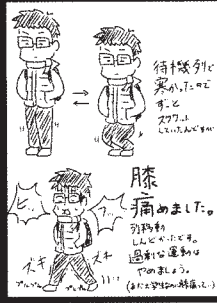 待機列で
寒かったので
ずっと
スクワット
していたんですが
膝
痛めました。
列移動
しんどかったです。
過剰な運動は
やめましょう。
ズキ
ズキ
プルプル
プルプル